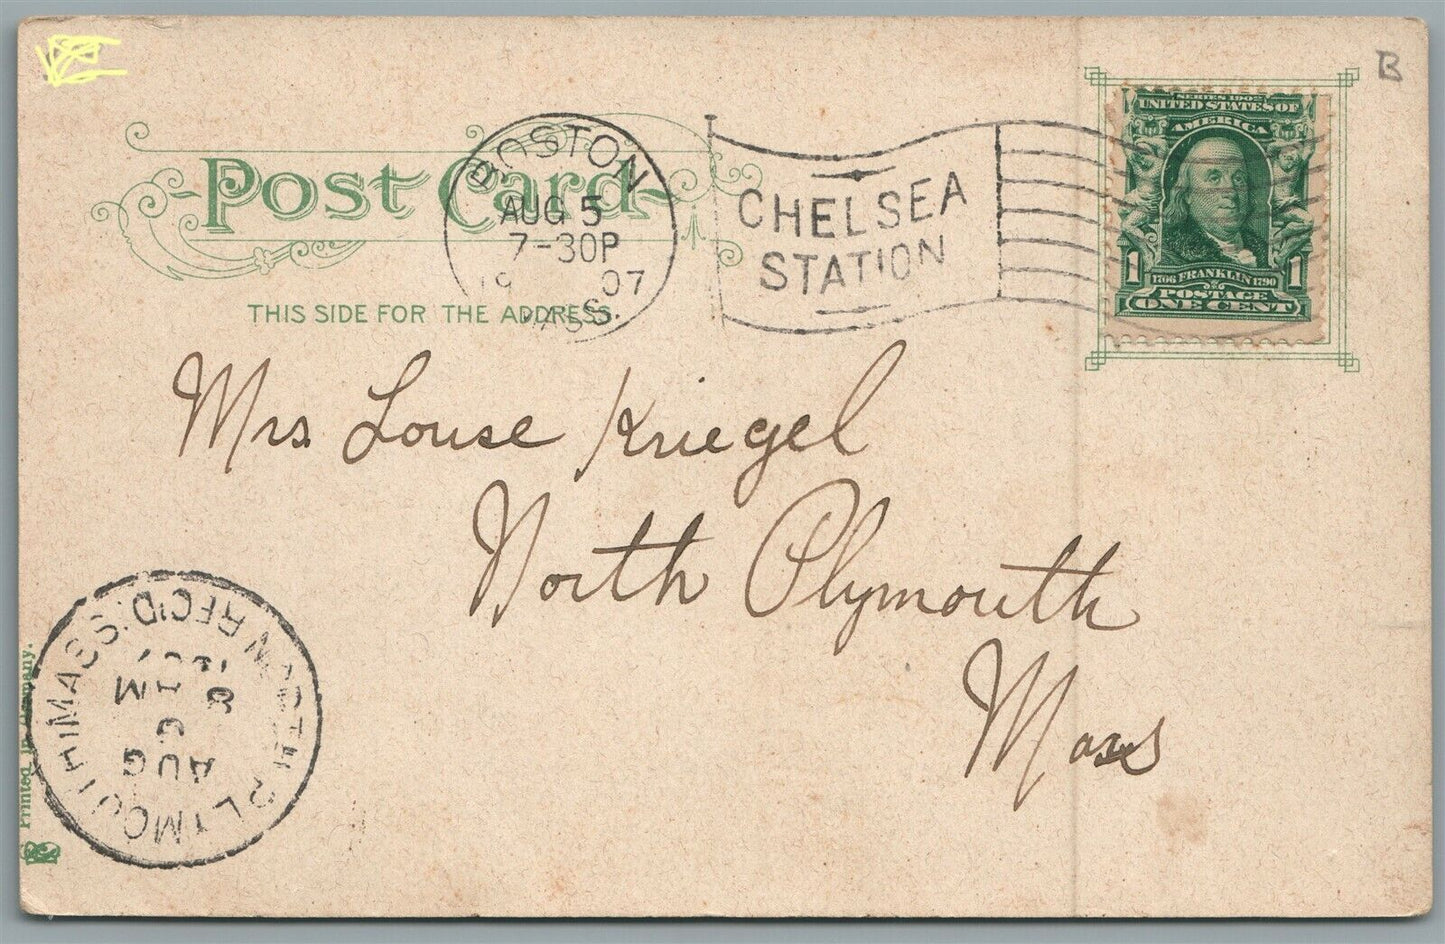 B
Post Card
THIS SIDE FOR THE ADDRESS.
BOSTON
AUG 5
7-30P
19 07
MASS.
CHELSEA
STATION
SERIES 1902
UNITED STATES OF
AMERICA
1 1706 FRANKLIN 1790 1
POSTAGE
ONE CENT
Mrs Louse Kriegel
North Plymouth
Mass
NORTH PLYMOUTH MASS. REC'D.
AUG
6
8
1907
Printed in Germany.